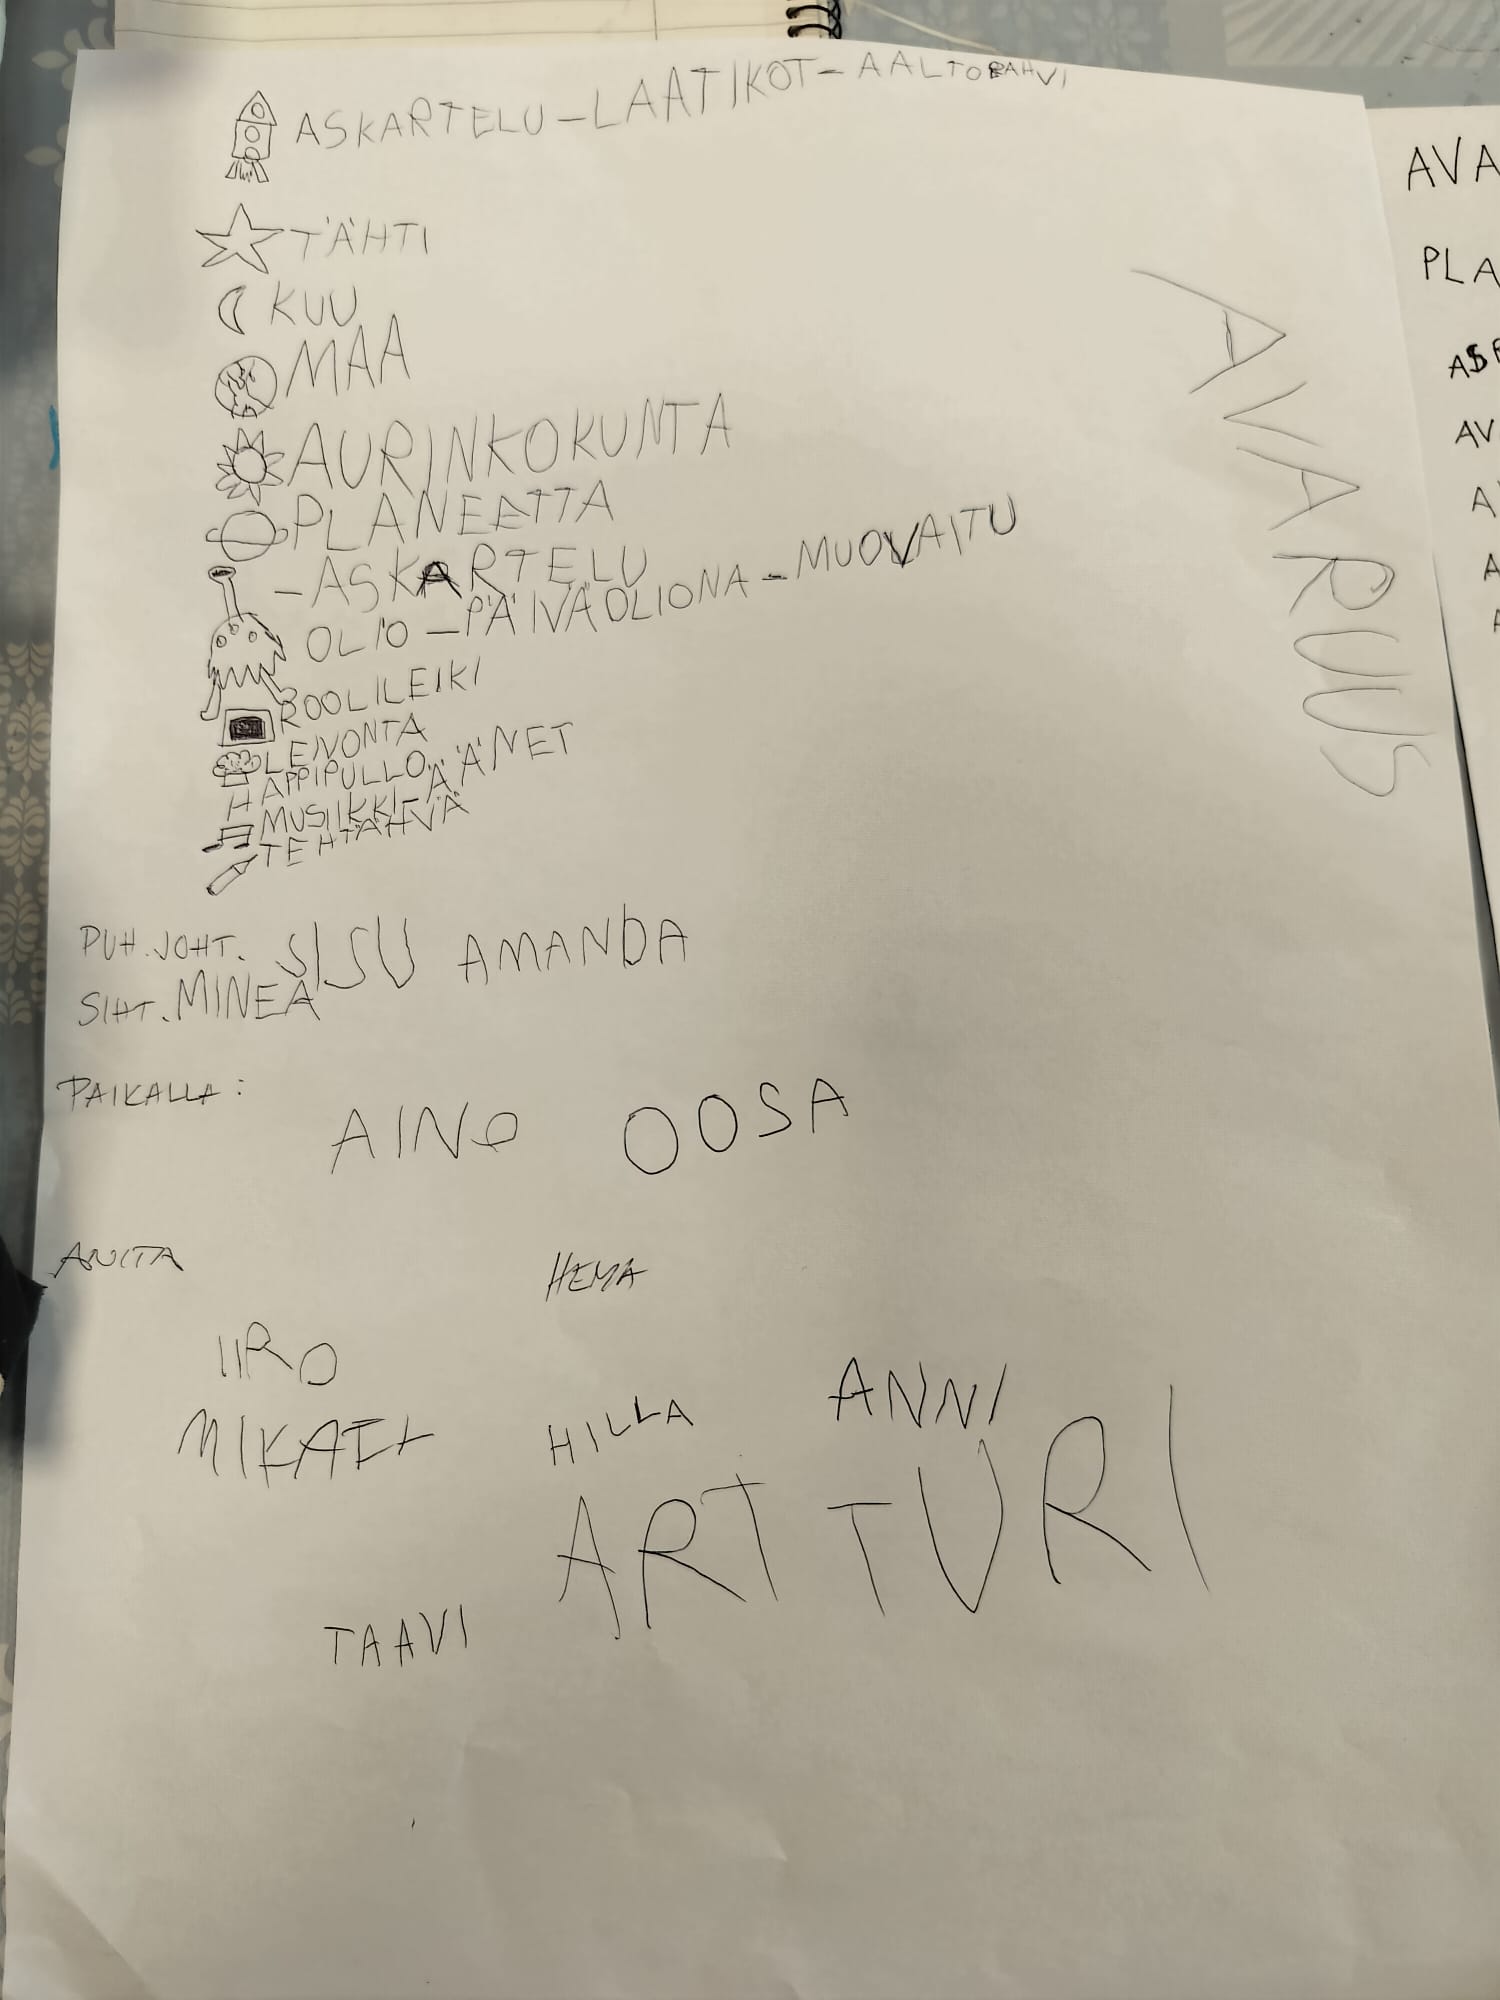 ASKARTELU - LAATIKOT - AALTOPAHVI
TÄHTI
KUU
MAA
AURINKOKUNTA
PLANEETTA
- ASKARTELU
OLIO - PÄIVÄOLIONA - MUOVAITU
ROOLILEIKI
LEIVONTA
HAPPIPULLO
MUSIIKKI - ÄÄNET
TEHTÄHVÄ
AVARUUS
PUH.JOHT. SISU AMANDA
SIHT. MINEA
PAIKALLA:
AINO OOSA
ANITA HEMA
IIRO
MIKAEL HILLA ANNI
ARTTURI
TAAVI
AVA
PLA
ASR
AV
A
A